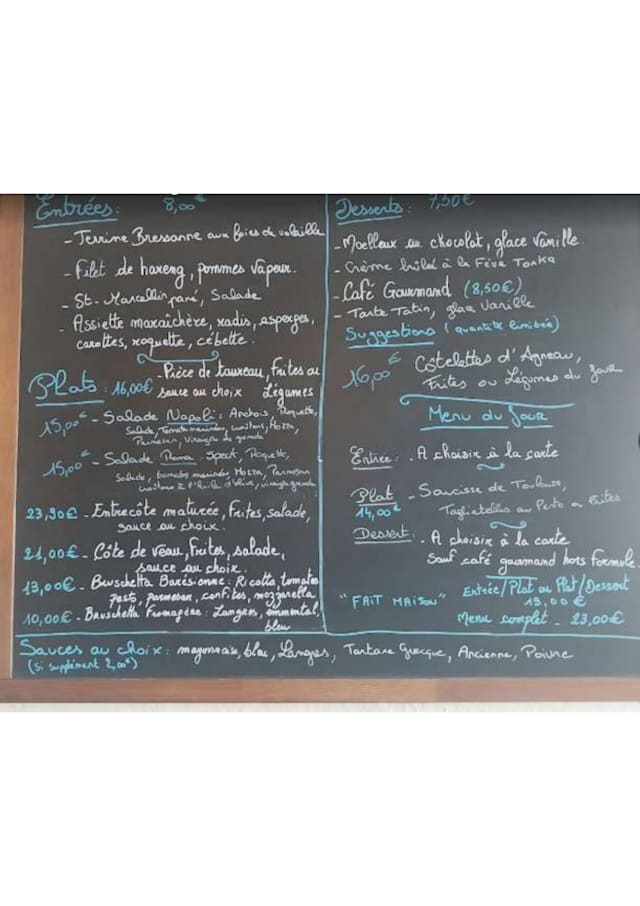 Entrées: 8,00€
- Terrine Bressanne aux foies de volaille
- Filet de hareng, pommes vapeur.
- St. Marcellin pané, Salade
- Assiette maraîchère, radis, asperges,
carottes, roquette, cébette.
Plats: 16,00€ - Pièce de taureau, frites ou
sauce au choix Légumes
15,00€ - Salade Napoli: Anchois, Roquette,
Salade, Tomates marinées, croûtons, Mozza,
Parmesan, Vinaigre de
15,00€ - Salade Roma: Speck, Roquette,
Salade, tomates marinées Mozza, Parmesan
croûtons à l'huile d'olive,
23,90€ - Entrecôte maturée, Frites, salade,
sauce au choix.
21,00€ - Côte de veau, frites, salade,
sauce au choix.
13,00€ - Bruschetta Barésienne: Ricotta, tomates
pesto, parmesan, confites, mozzarella
10,00€ - Bruschetta Fromagère: Langres, emmental,
bleu
Desserts: 7,50€
- Moelleux au chocolat, glace Vanille.
- Crème brûlée à la Fève Tonka
- Café Gourmand (8,50€)
- Tarte Tatin, glace Vanille
Suggestions (quantité limitée)
16,00€ Côtelettes d'Agneau,
Frites ou Légumes du jour
Menu du Jour
Entrée: . A choisir à la carte
Plat - Saucisse de Toulouse,
14,00€ Tagliatelles au Pesto ou Frites
Dessert: . A choisir à la carte
Sauf café gourmand hors formule.
"FAIT MAISON" Entrée/Plat ou Plat/Dessert
19,00€
Menu complet - 23,00€
Sauces au choix: mayonnaise, bleu, Langres, Tartare Grecque, Ancienne, Poivre
(Si supplément 2,00€)